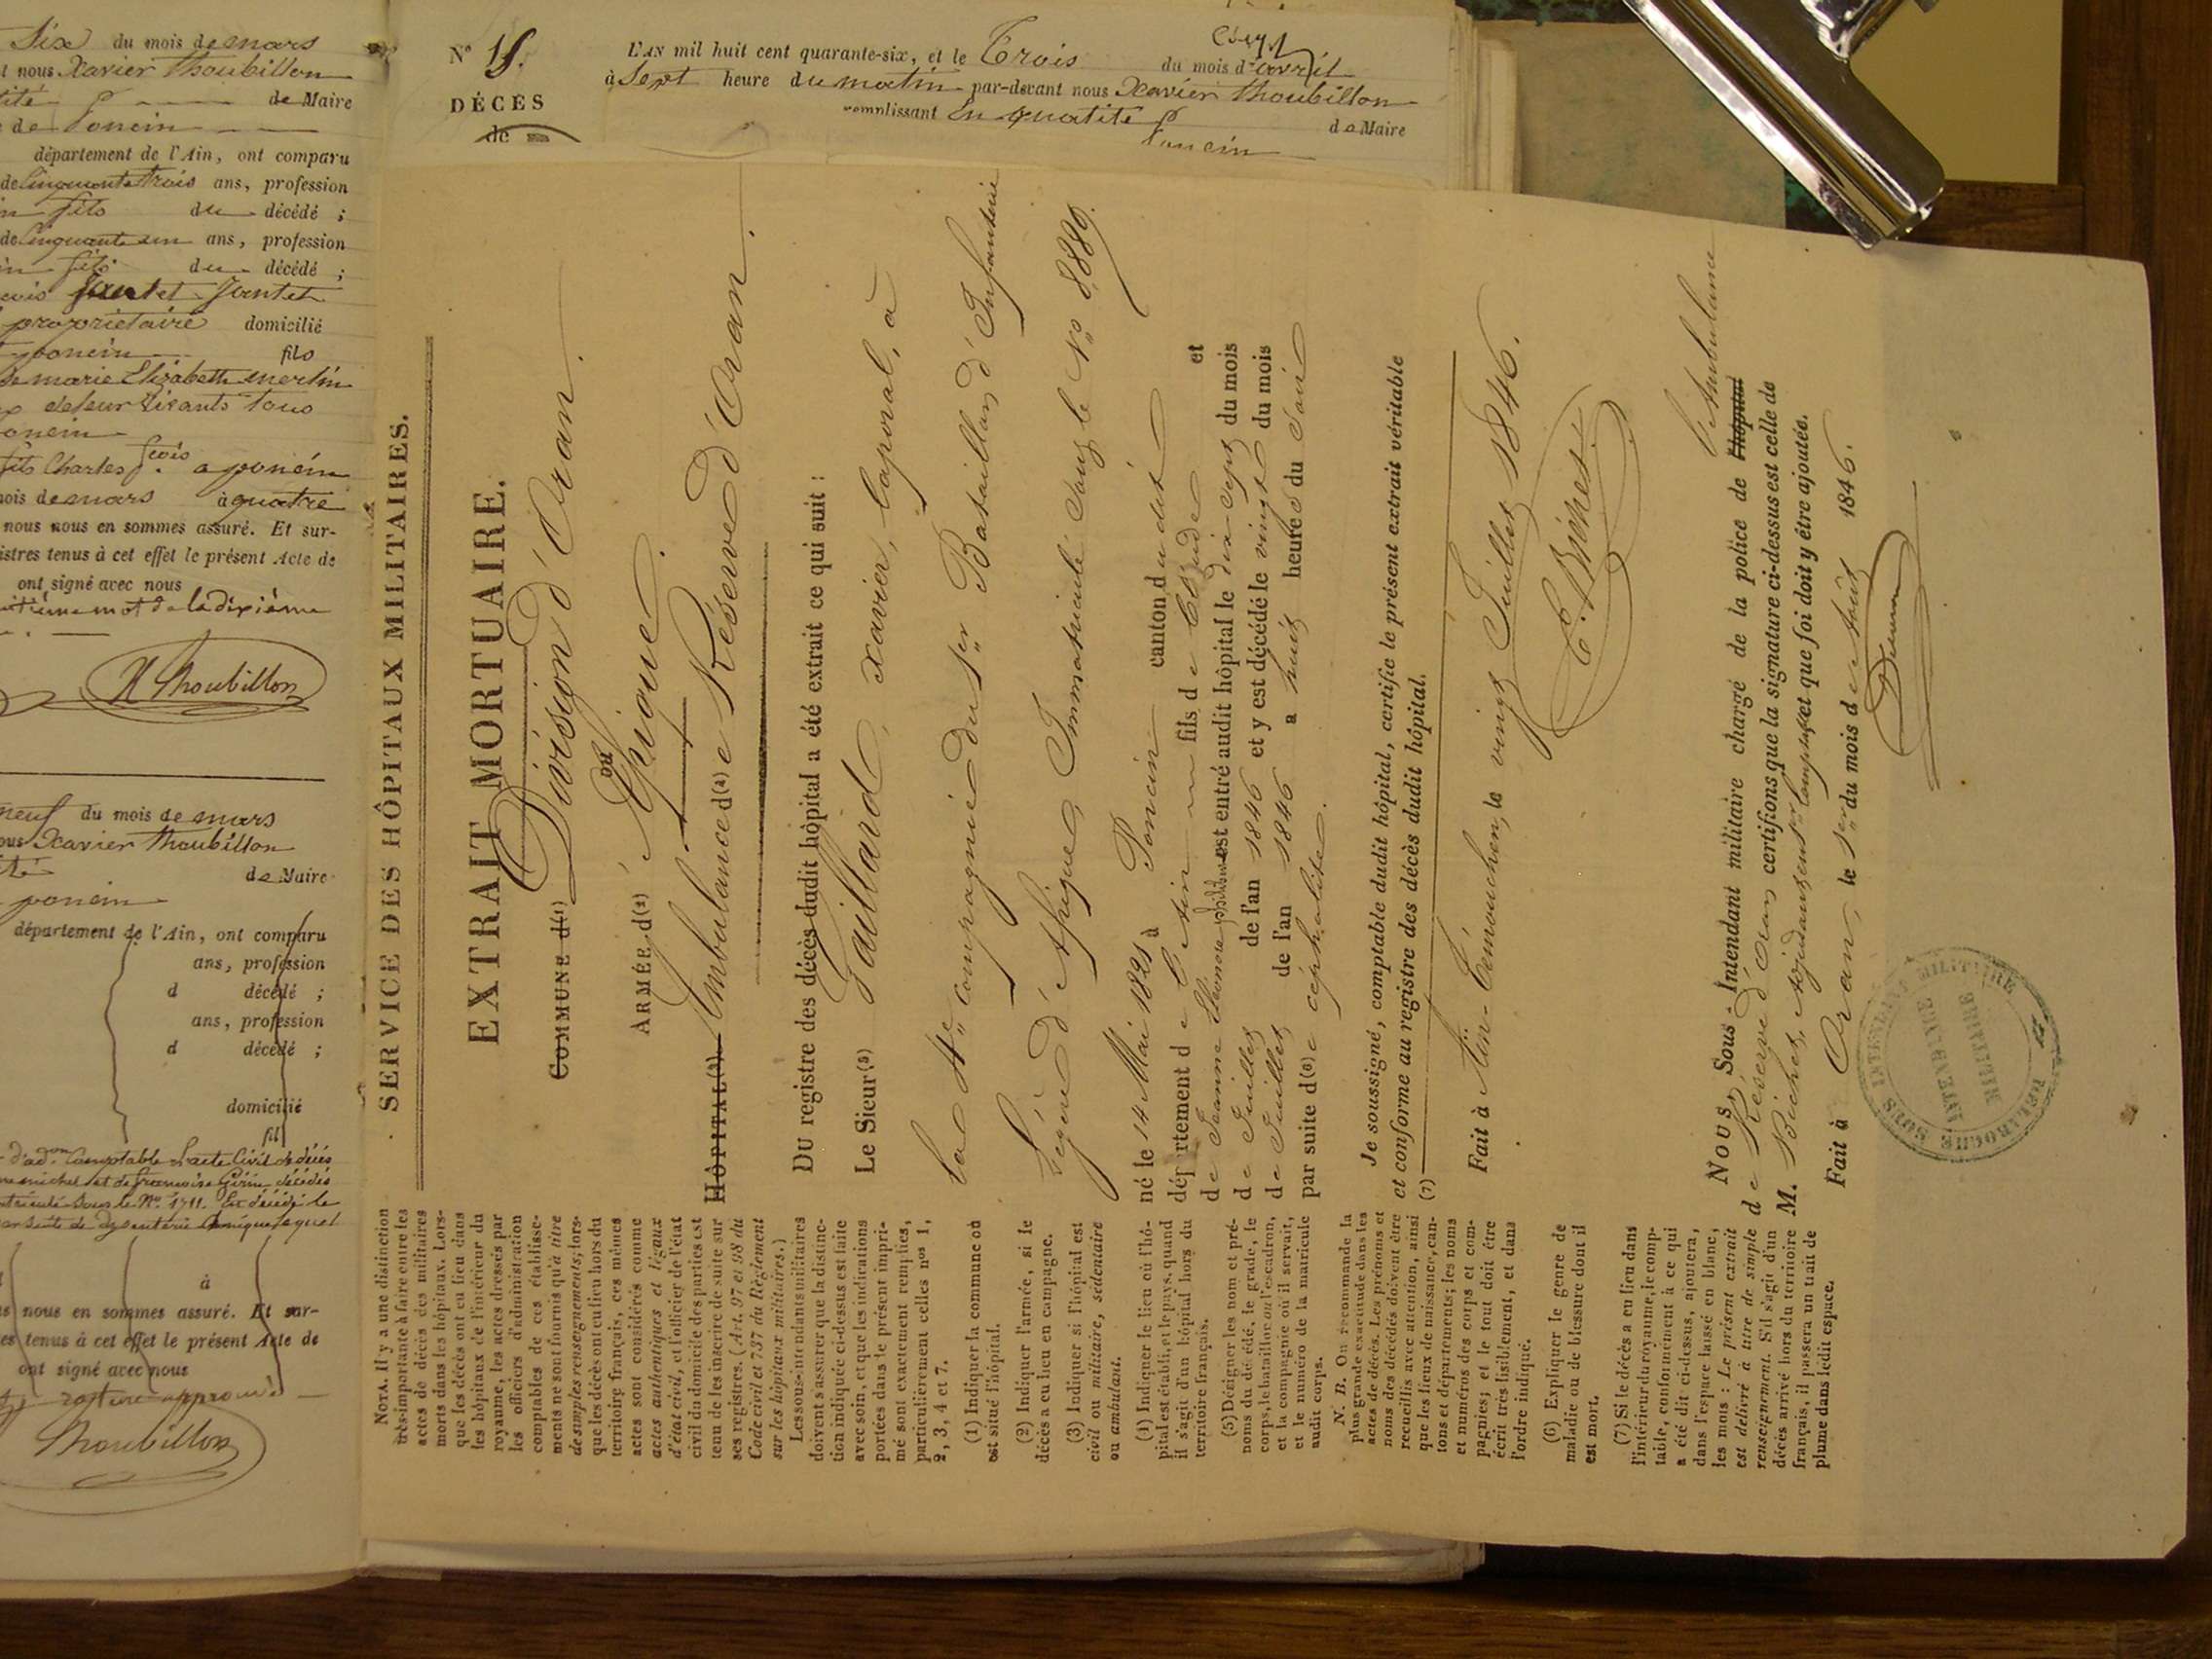 Six du mois de mars
nous Xavier Thoubillon
de Maire
de Poncin
département de l'Ain, ont comparu
de Cinquante trois ans, profession
fils du décédé ;
de Cinquante un ans, profession
fils du décédé ;
Jantet Jantet
propriétaire domicilié
poncin fils
de marie Elizabeth merlin
tous
oncin
fils Charles fcois a poncin
mois de mars à quatre
nous nous en sommes assuré. Et sur-
istres tenus à cet effet le présent Acte de
ont signé avec nous
mot de la dixième
X Thoubillon
neuf du mois de mars
ous Xavier Thoubillon
de Maire
poncin
département de l'Ain, ont comparu
ans, profession
d décédé ;
ans, profession
d décédé ;
domicilié
fil
d'adon Comptable l'acte Civil de décès
michel et de francoise décédés
sous le No. 1711. Est décédé le
suite de dysenterie
à
nous en sommes assuré. Et sur-
es tenus à cet effet le présent Acte de
ont signé avec nous
rature approuvé
Thoubillon
N° 15.
DÉCÈS
de
L'AN mil huit cent quarante-six, et le Trois du mois d'avril
à Sept heure du matin par-devant nous Xavier Thoubillon
remplissant En qualité de Maire
Poncin
SERVICE DES HÔPITAUX MILITAIRES.
EXTRAIT MORTUAIRE.
COMMUNE d(1) Division d'Oran.
OU
ARMÉE d(2) Afrique.
HÔPITAL(3) Ambulance d(4)e Réserve d'Oran.
DU registre des décès dudit hôpital a été extrait ce qui suit :
Le Sieur(5) Gaillard, Xavier, Caporal, à
la 4e compagnie du 1er Bataillon d'Infanterie
Légère d'Afrique, Immatriculé Sous le No 8880.
né le 14 Mai 1821 à Poncin canton dudit
département de l'ain fils de Claude et
de Jeanne est entré audit hôpital le dix sept du mois
de Juillet de l'an 1846 et y est décédé le vingt du mois
de Juillet de l'an 1846 a huit heures du Soir
par suite d(6)e céphalite.
Je soussigné, comptable dudit hôpital, certifie le présent extrait véritable
et conforme au registre des décès dudit hôpital.
(7)
Fait à Aïn-Témouchen, le vingt Juillet 1846.
E. Bichet
l'Ambulance
NOUS, Sous-Intendant militaire chargé de la police de l'hôpital
de Réserve d'Oran certifions que la signature ci-dessus est celle de
M. Bichet, adjudant et que foi doit y être ajoutée.
Fait à Oran, le 1er du mois d'Août 1846.
SOUS INTENDANT MILITAIRE
INTENDANCE
MILITAIRE
DELAROCHE
NOTA. Il y a une distinction
très-importante à faire entre les
actes de décès des militaires
morts dans les hôpitaux. Lors-
que les décès ont eu lieu dans
les hôpitaux de l'intérieur du
royaume, les actes dressés par
les officiers d'administration
comptables de ces établisse-
ments ne sont fournis qu'à titre
de simples renseignements; lors-
que les décès ont eu lieu hors du
territoire français, ces mêmes
actes sont considérés comme
actes authentiques et légaux
d'état civil, et l'officier de l'état
civil du domicile des parties est
tenu de les inscrire de suite sur
ses registres. (Art. 97 et 98 du
Code civil et 737 du Règlement
sur les hôpitaux militaires.)
Les sous-intendants militaires
doivent s'assurer que la distinc-
tion indiquée ci-dessus est faite
avec soin, et que les indications
portées dans le présent impri-
mé sont exactement remplies,
particulièrement celles nos 1,
2, 3, 4 et 7.
(1) Indiquer la commune où
est situé l'hôpital.
(2) Indiquer l'armée, si le
décès a eu lieu en campagne.
(3) Indiquer si l'hôpital est
civil ou militaire, sédentaire
ou ambulant.
(4) Indiquer le lieu où l'hô-
pital est établi, et le pays, quand
il s'agit d'un hôpital hors du
territoire français.
(5) Désigner les nom et pré-
noms du décédé, le grade, le
corps, le bataillon ou l'escadron,
et la compagnie où il servait,
et le numéro de la matricule
audit corps.
N. B. On recommande la
plus grande exactitude dans les
actes de décès. Les prénoms et
noms des décédés doivent être
recueillis avec attention, ainsi
que les lieux de naissance, can-
tons et départements; les noms
et numéros des corps et com-
pagnies; et le tout doit être
écrit très lisiblement, et dans
l'ordre indiqué.
(6) Expliquer le genre de
maladie ou de blessure dont il
est mort.
(7) Si le décès a eu lieu dans
l'intérieur du royaume, le comp-
table, conformément à ce qui
a été dit ci-dessus, ajoutera,
dans l'espace laissé en blanc,
les mots : Le présent extrait
est délivré à titre de simple
renseignement. S'il s'agit d'un
décès arrivé hors du territoire
français, il passera un trait de
plume dans ledit espace.